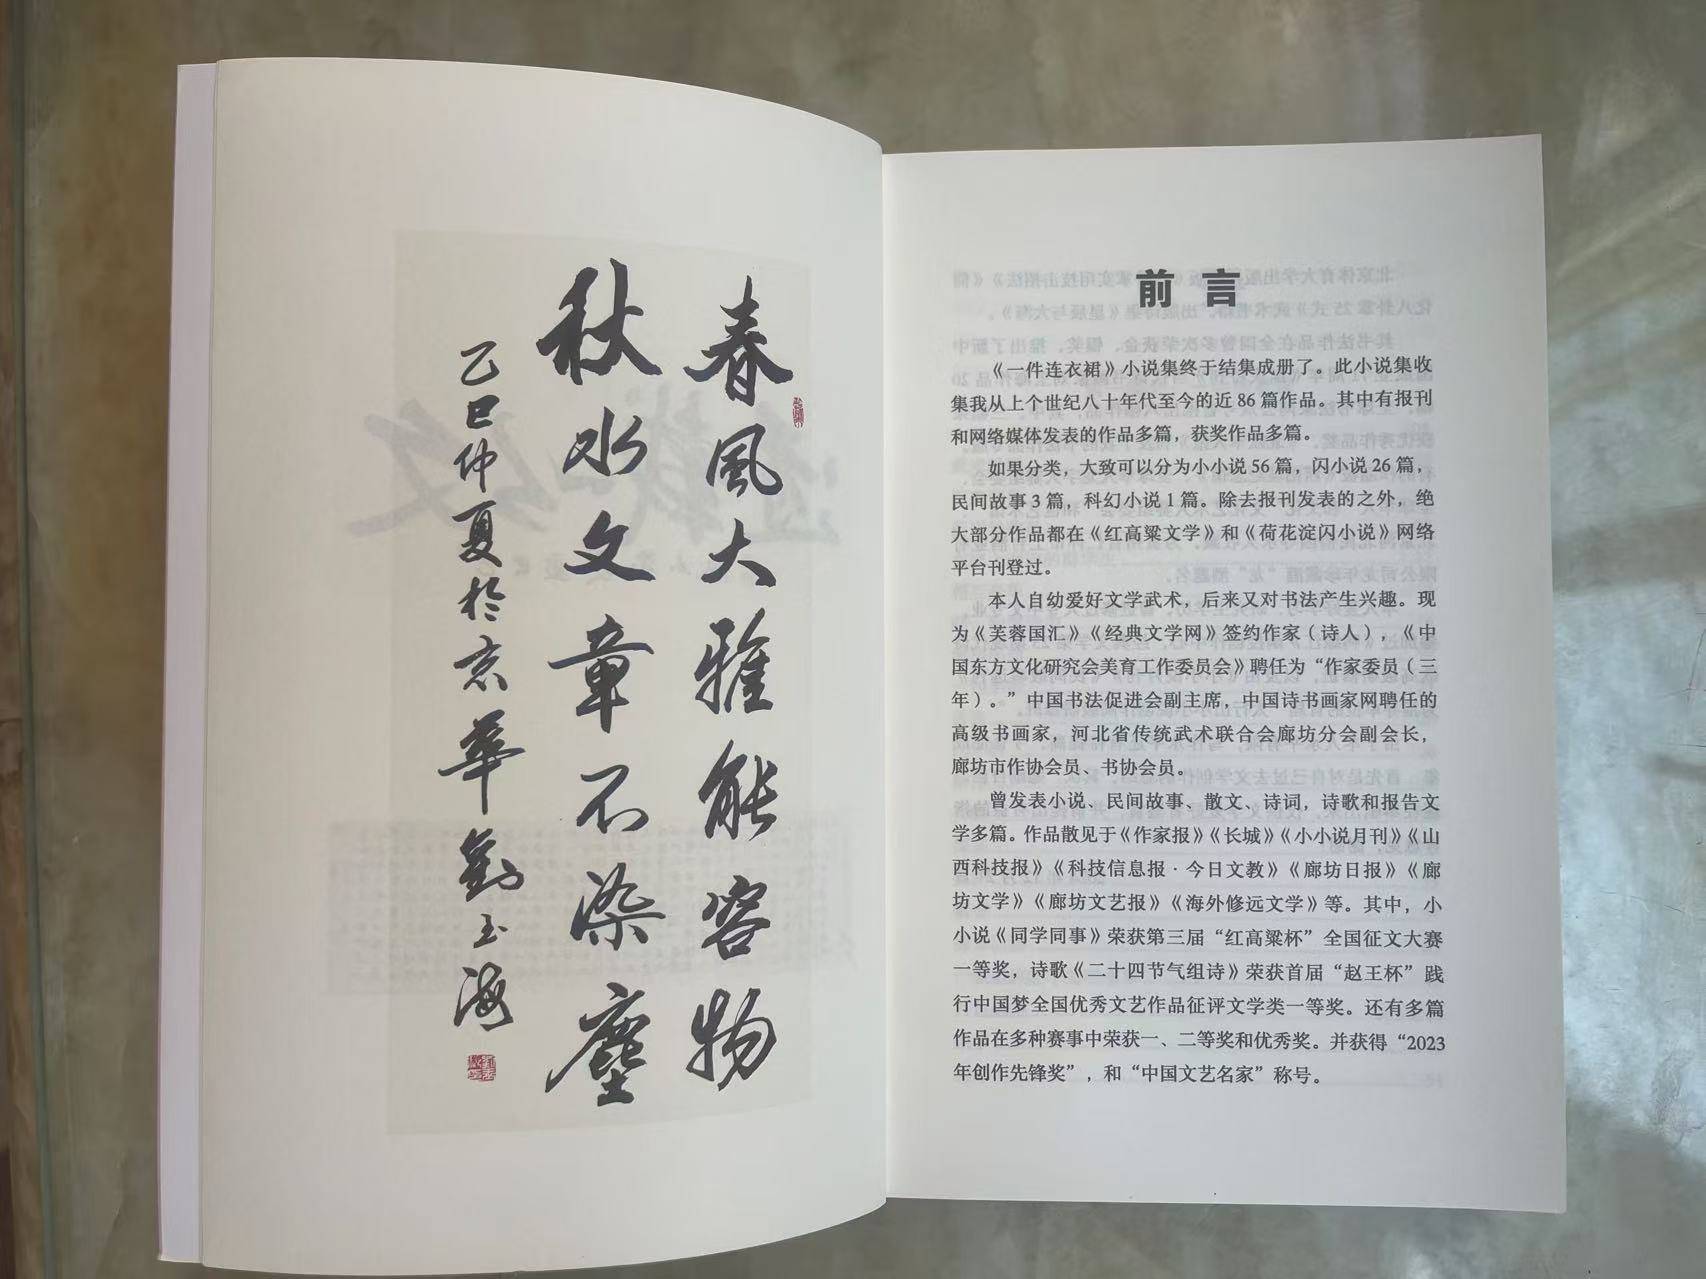 春風大雅能容物
秋水文章不染塵
乙巳仲夏於京華劉玉海
前言
《一件连衣裙》小说集终于结集成册了。此小说集收
集我从上个世纪八十年代至今的近86篇作品。其中有报刊
和网络媒体发表的作品多篇，获奖作品多篇。
如果分类，大致可以分为小小说56篇，闪小说26篇，
民间故事3篇，科幻小说1篇。除去报刊发表的之外，绝
大部分作品都在《红高粱文学》和《荷花淀闪小说》网络
平台刊登过。
本人自幼爱好文学武术，后来又对书法产生兴趣。现
为《芙蓉国汇》《经典文学网》签约作家（诗人），《中
国东方文化研究会美育工作委员会》聘任为“作家委员（三
年）。”中国书法促进会副主席，中国诗书画家网聘任的
高级书画家，河北省传统武术联合会廊坊分会副会长，
廊坊市作协会员、书协会员。
曾发表小说、民间故事、散文、诗词，诗歌和报告文
学多篇。作品散见于《作家报》《长城》《小小说月刊》《山
西科技报》《科技信息报·今日文教》《廊坊日报》《廊
坊文学》《廊坊文艺报》《海外修远文学》等。其中，小
小说《同学同事》荣获第三届“红高粱杯”全国征文大赛
一等奖，诗歌《二十四节气组诗》荣获首届“赵王杯”践
行中国梦全国优秀文艺作品征评文学类一等奖。还有多篇
作品在多种赛事中荣获一、二等奖和优秀奖。并获得“2023
年创作先锋奖”，和“中国文艺名家”称号。